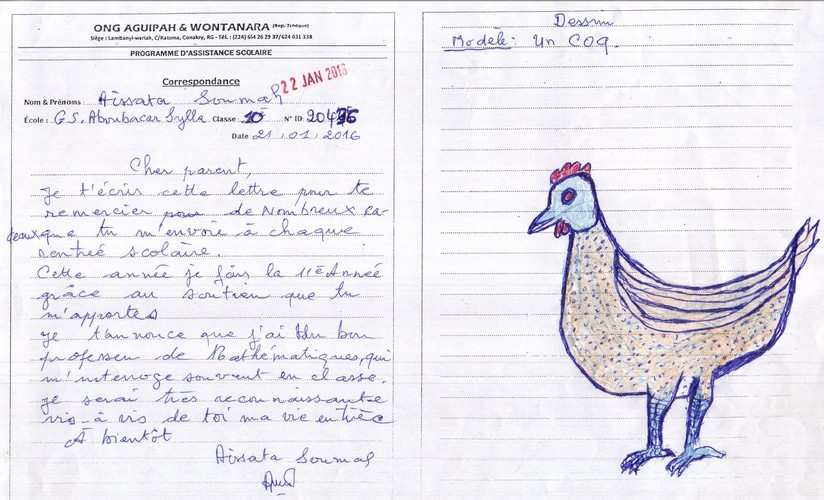 ONG AGUIPAH & WONTANARA (Rep. Tchèque)
Siège : Lambanyi-wariah, C/Ratoma, Conakry, RG - Tél. : (224) 664 26 29 37/624 031 338
PROGRAMME D'ASSISTANCE SCOLAIRE
Correspondance
22 JAN 2016
Nom & Prénoms : Aïssata Soumah
École : G.S. Aboubacar Sylla Classe : 10e N° ID: 20495
Date 21.01.2016
Cher parent,
je t'écris cette lettre pour te
remercier pour de Nombreux ca-
deaux que tu m'envoie à chaque
rentrée scolaire.
Cette année je fais la 11è Année
grâce au soutien que tu
m'apportes
je t'annonce que j'ai Un bon
professeu de Mathématiques, qui
m'interroge souvent en classe.
je serai très reconnaissante
vis-à vis de toi ma vie entière
A bientôt
Aïssata Soumah
Dessin
Modèle : Un COQ.